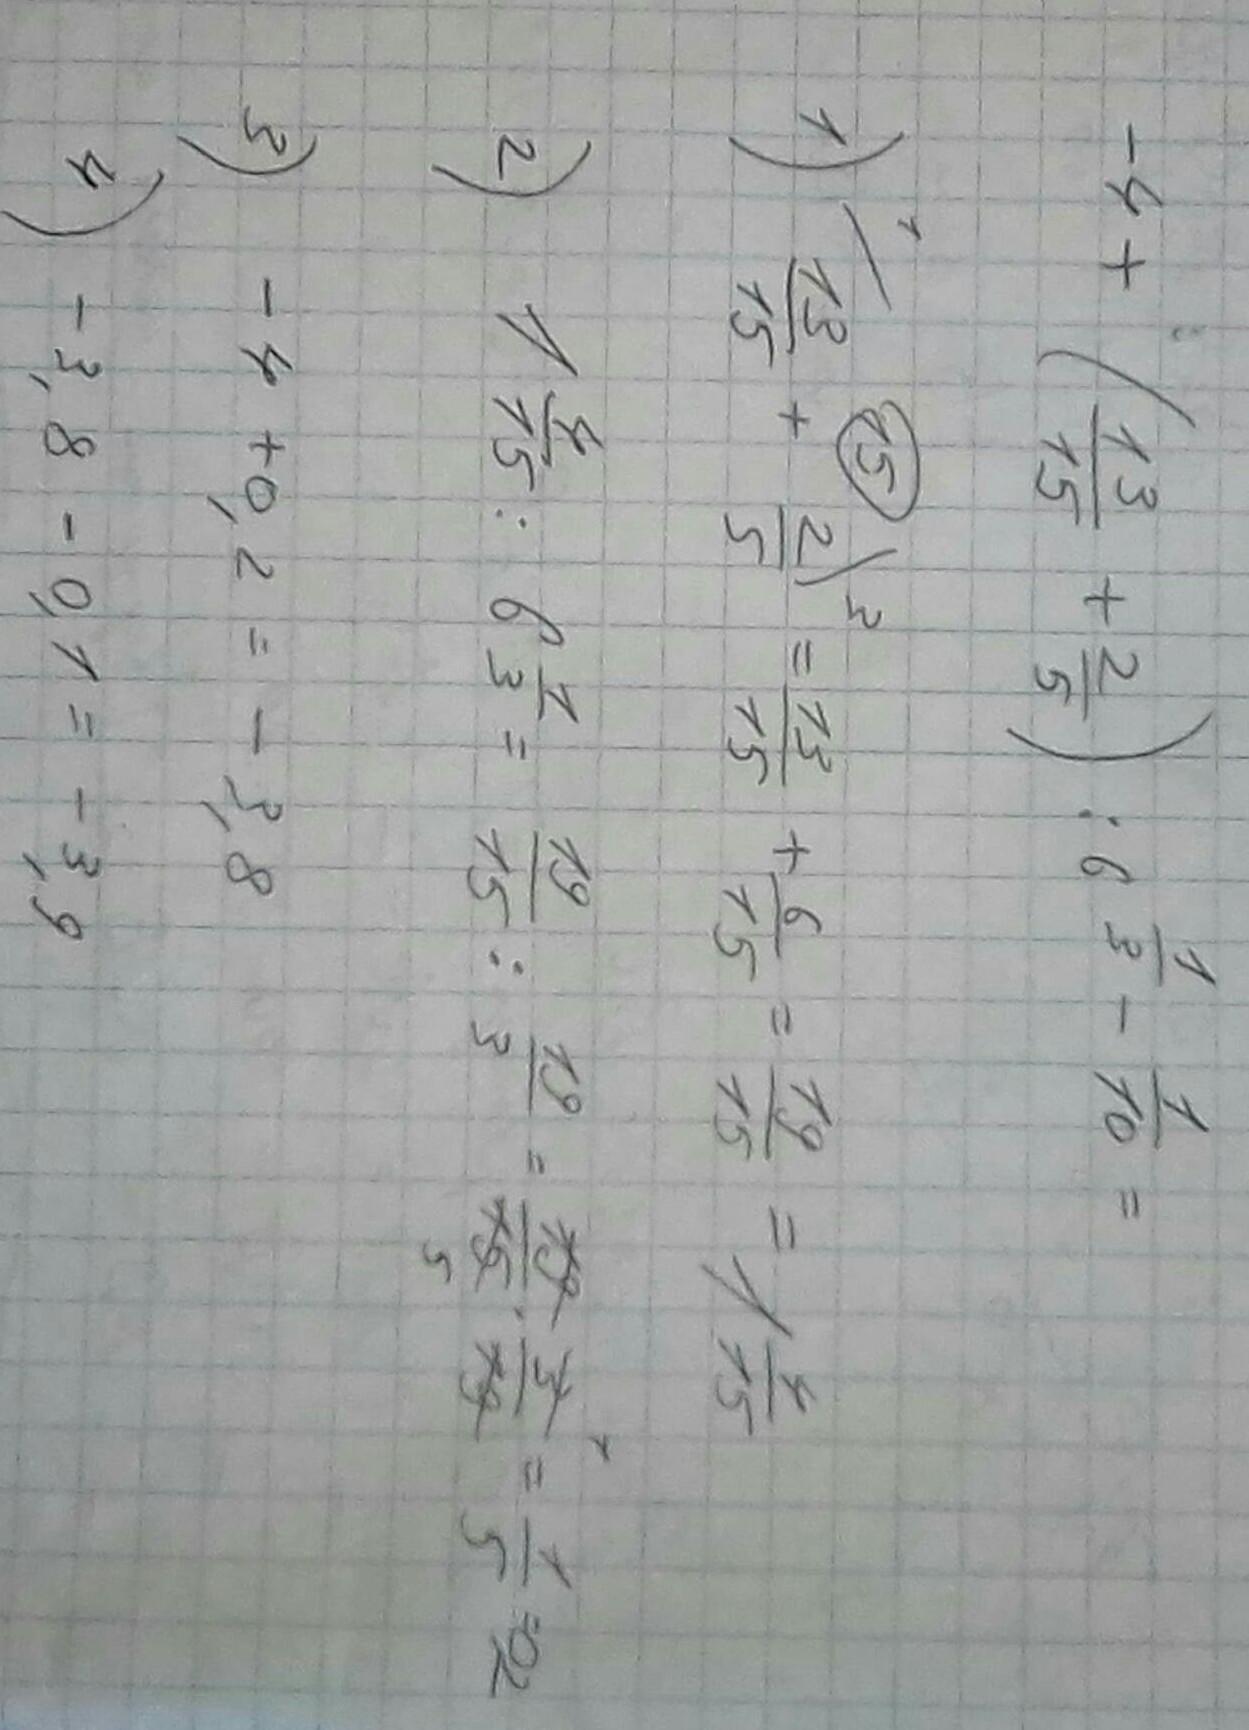 -4 + (13/15 + 2/5) : 6 1/3 - 1/10 =
1) 13/15 + 2/5 = 13/15 + 6/15 = 19/15 = 1 4/15
2) 1 4/15 : 6 1/3 = 19/15 : 19/3 = 19/15 · 3/19 = 1/5 = 0,2
3) -4 + 0,2 = -3,8
4) -3,8 - 0,1 = -3,9